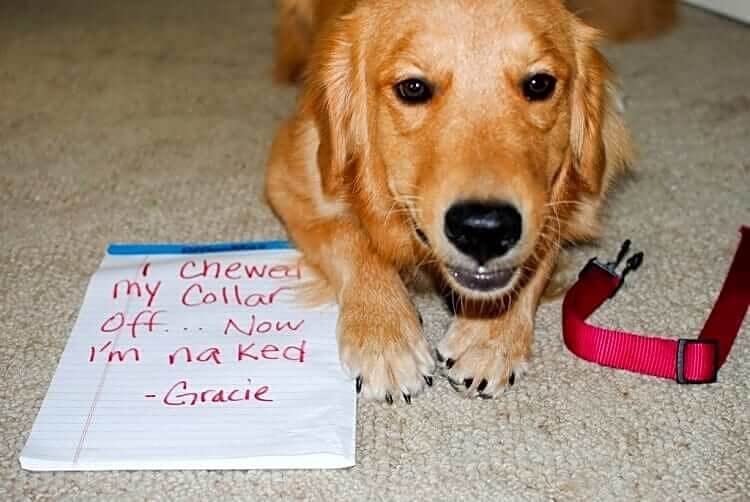 I chewed
my Collar
Off... Now
I'm naked
- Gracie